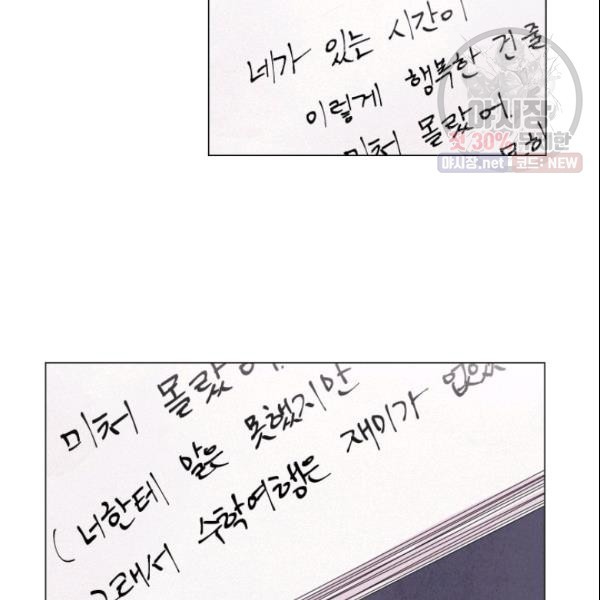 네가 있는 시간이
이렇게 행복한 건줄
미처 몰랐어.
야시장
첫 30% 무제한
야시장.net 코드: NEW
미처 몰랐어.
(너한테 말은 못했지만
그래서 수학여행은 재미가 없었